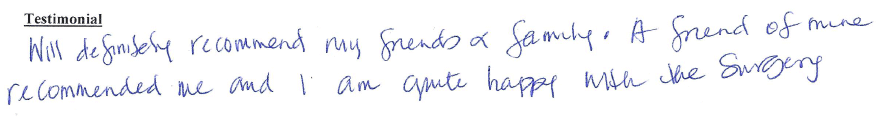 Testimonial
Will definitely recommend my friends & family. A friend of mine
recommended me and I am quite happy with the Surgery